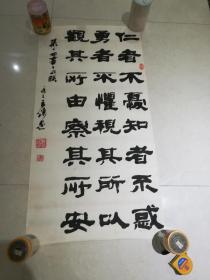 仁者不憂知者不惑
勇者不懼視其所以
觀其所由察其所安